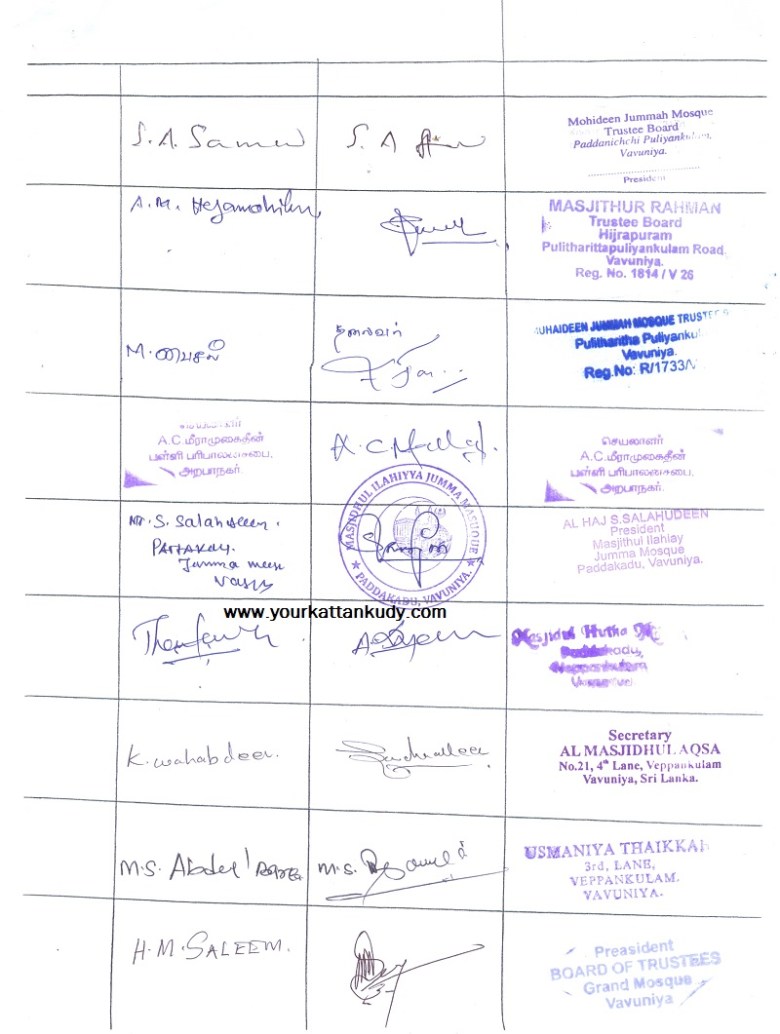 S. A. Samew
S. A
Mohideen Jummah Mosque
Trustee Board
Paddanichchi Puliyankulam,
Vavuniya.
President
A. M.
MASJITHUR RAHMAN
Trustee Board
Hijrapuram
Pulitharittapuliyankulam Road.
Vavuniya.
Reg. No. 1814 / V 26
M. பைசல்
தலைவர்
UHAIDEEN JUMMAH MOSQUE TRUSTEES
Pulitharitha Puliyanku
Vavuniya.
Reg.No: R/1733/V
A.C.மீராமுகைதீன்
பள்ளி பரிபாலனசபை,
அறபாநகர்.
A. C.
செயலாளர்
A.C.மீராமுகைதீன்
பள்ளி பரிபாலனசபை,
அறபாநகர்.
Mr. S. Salahudeen.
Jumma
MASJIDHUL ILAHIYYA JUMMA MASHQUE
PADDAKADU, VAVUNIYA.
AL HAJ S.SALAHUDEEN
President
Masjithul Ilahiay
Jumma Mosque
Paddakadu, Vavuniya.
www.yourkattankudy.com
Masjidul Hutha
Paddakadu,
Veppankulam
K. wahabdeen.
Secretary
AL MASJIDHUL AQSA
No.21, 4th Lane, Veppankulam
Vavuniya, Sri Lanka.
M.S. Abdul
M.S.
USMANIYA THAIKKAH
3rd, LANE,
VEPPANKULAM.
VAVUNIYA.
H.M.SALEEM.
Preasident
BOARD OF TRUSTEES
Grand Mosque
Vavuniya